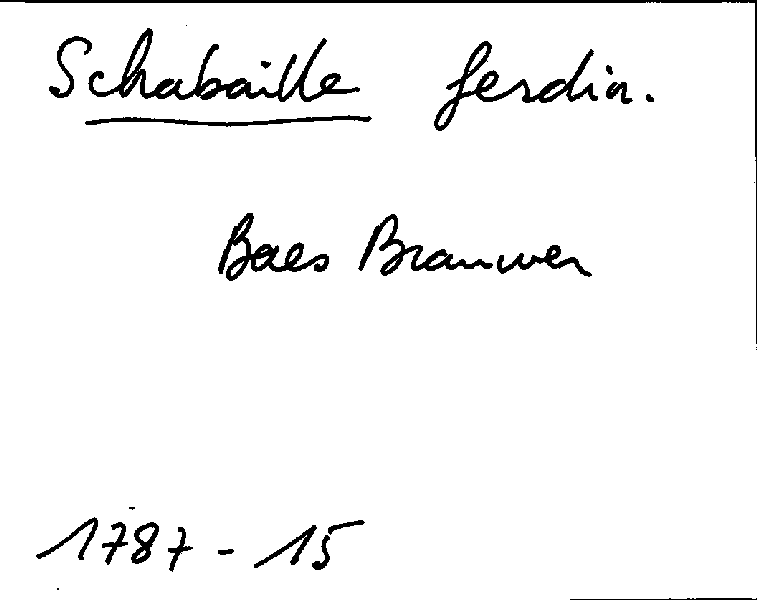 Schabaille ferdin.
Baes Brauwer
1787 - 15